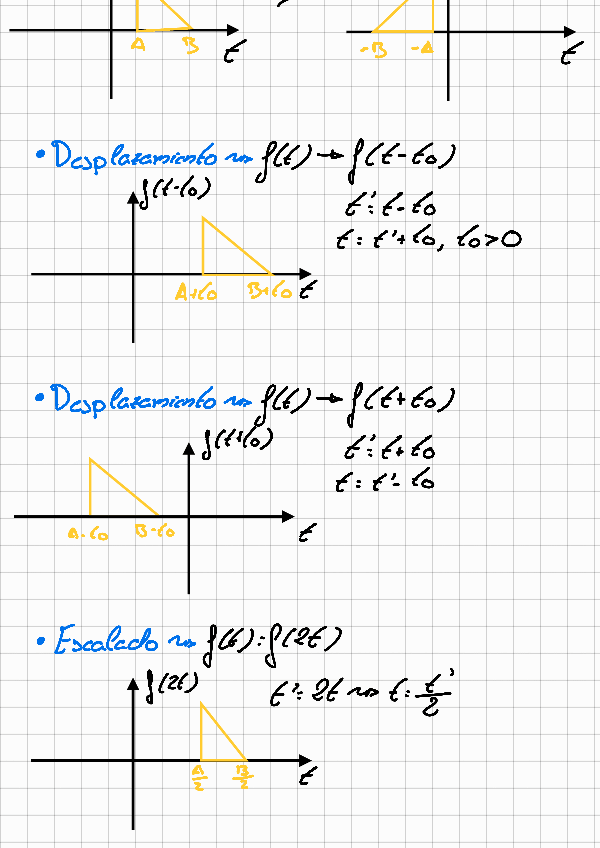 A B t
-B -A t
• Desplazamiento ⇝ f(t) → f(t-t0)
f(t-t0)
t'= t-t0
t= t'+t0, t0>0
A+t0 B+t0 t
• Desplazamiento ⇝ f(t) → f(t+t0)
f(t+t0)
t'= t+t0
t= t'- t0
A-t0 B-t0 t
• Escalado ⇝ f(t)=f(2t)
f(2t)
t'= 2t ⇝ t= t'/2
A/2 B/2 t